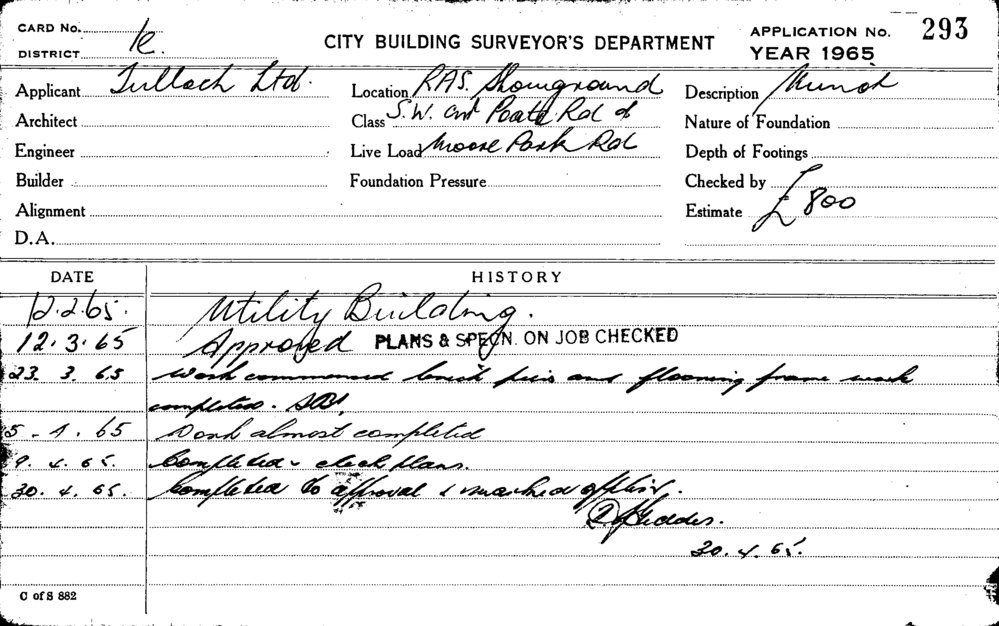 CARD No.
DISTRICT
CITY BUILDING SURVEYOR'S DEPARTMENT
APPLICATION No. 293
YEAR 1965
Applicant Tulloch Ltd.
Location RAS. Showground
Description
Architect
Class S.W. cnr Poate Rd &
Nature of Foundation
Engineer
Live Load Moore Park Rd
Depth of Footings
Builder
Foundation Pressure
Checked by
Alignment
Estimate £800
D.A.
DATE HISTORY
12.2.65. Utility Building.
12.3.65 Approved PLANS & SPECN. ON JOB CHECKED
23. 3. 65 Work commenced brick piers and flooring frame work
completed.
5. 4. 65 Work almost completed
9. 4. 65. Completed check plans.
30. 4. 65. Completed to approval & marked off
Geddes.
30.4.65.
C of S 882